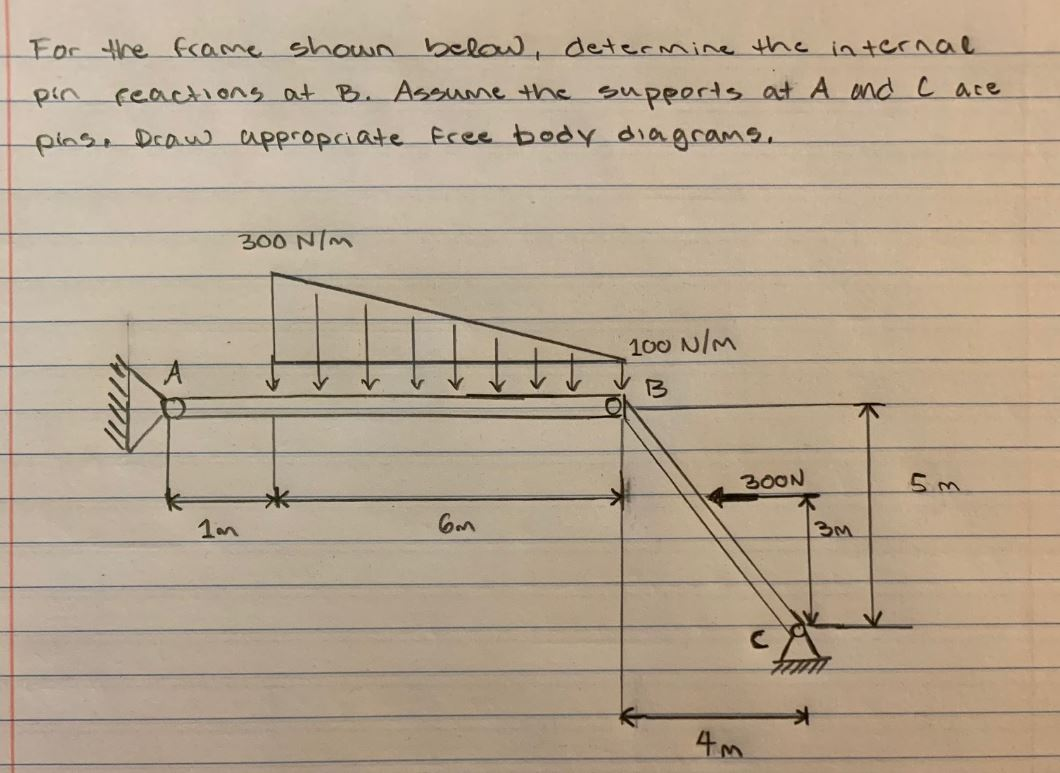 For the frame shown below, determine the internal
pin reactions at B. Assume the supports at A and C are
pins. Draw appropriate free body diagrams.
300 N/m
100 N/m
A
B
300N
5m
1m
6m
3m
C
4m